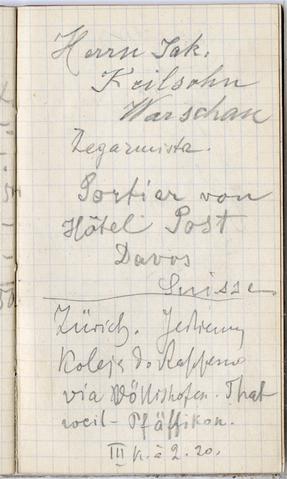 Herrn Jak.
Feilsohn
Warschau
Zegarmistz.
Portier von
Hôtel Post
Davos
Suisse
Zürich. Jedziemy
Koleją do Rappersw
via Wollishofen. Thal
weil - Pfäffikon.
III k. à 2.20.